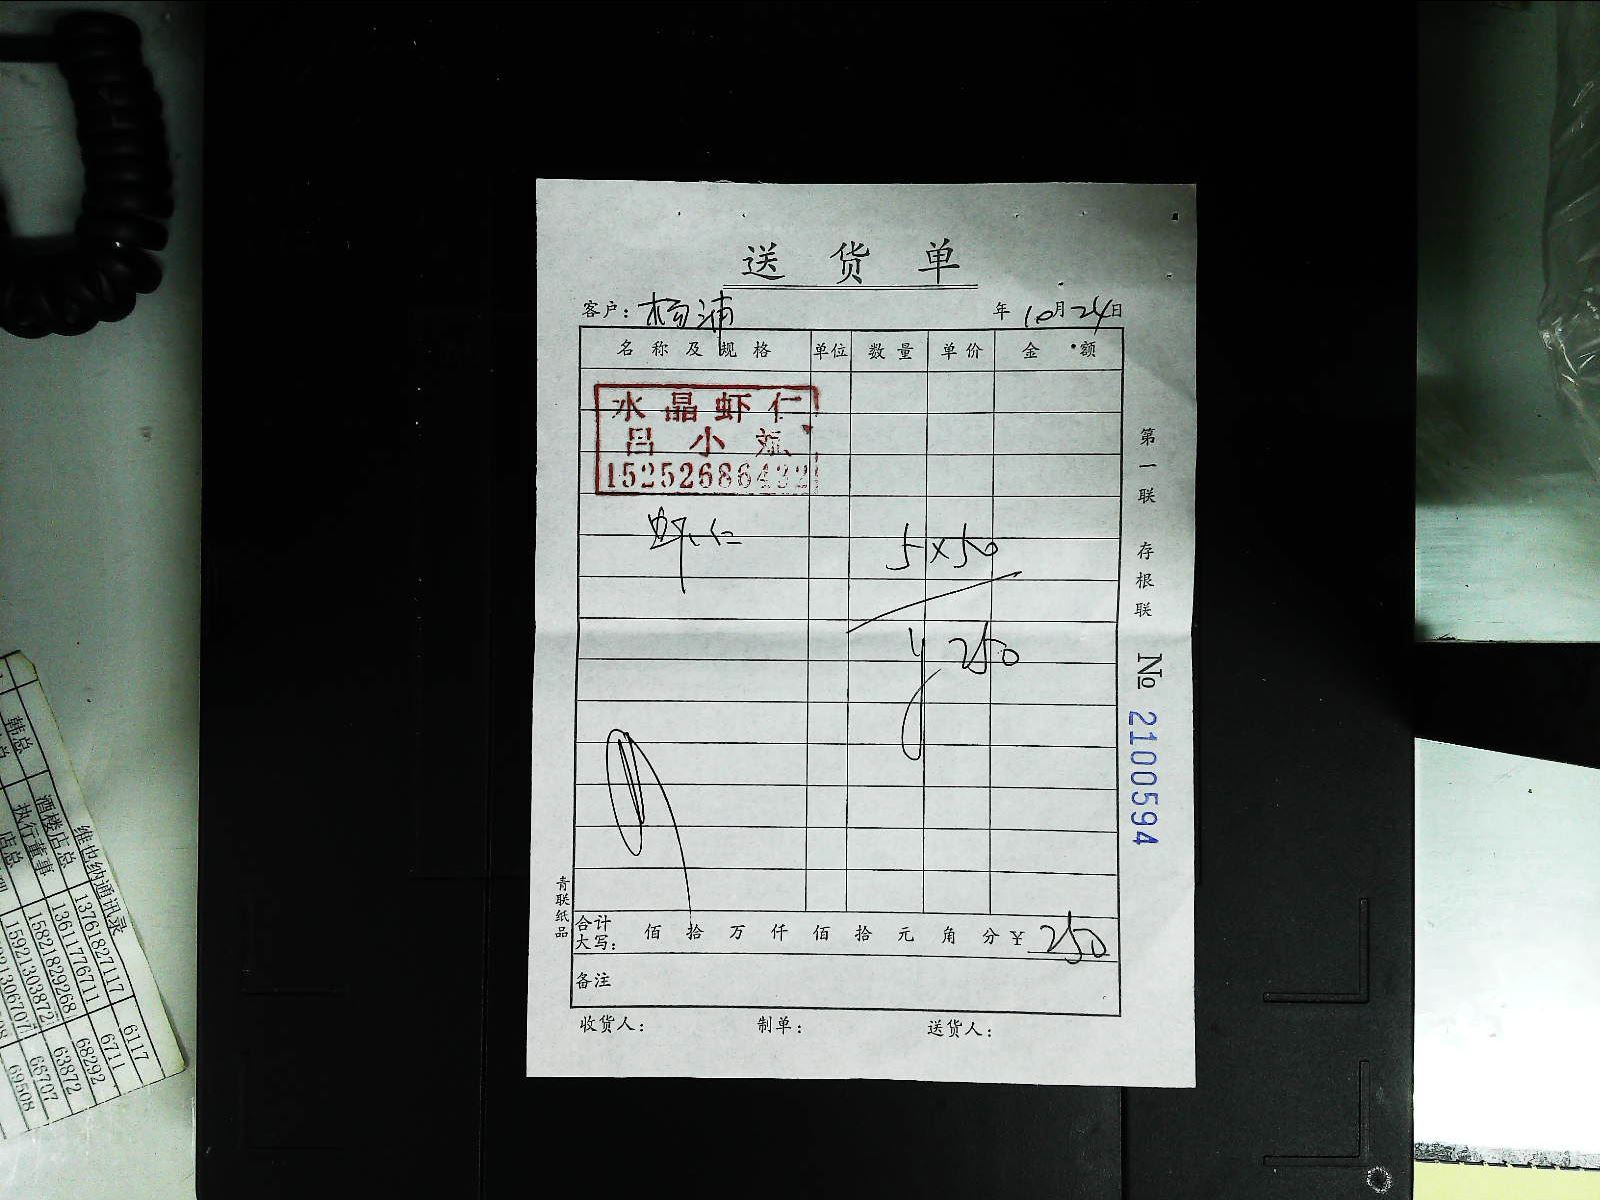 送货单
客户：杨浦 年10月24日
名称及规格 单位 数量 单价 金额
水晶虾仁
吕小
15252686432
虾仁 5×50
250
合计大写： 佰 拾 万 仟 佰 拾 元 角 分 ¥ 250
备注
收货人： 制单： 送货人：
第一联 存根联
№ 2100594
青联纸品
维也纳通讯录
韩总
酒楼店总 13761827117 6117
执行董事 13611776711 6711
店总 15821829268 68292
15921303872 63872
66707
69508